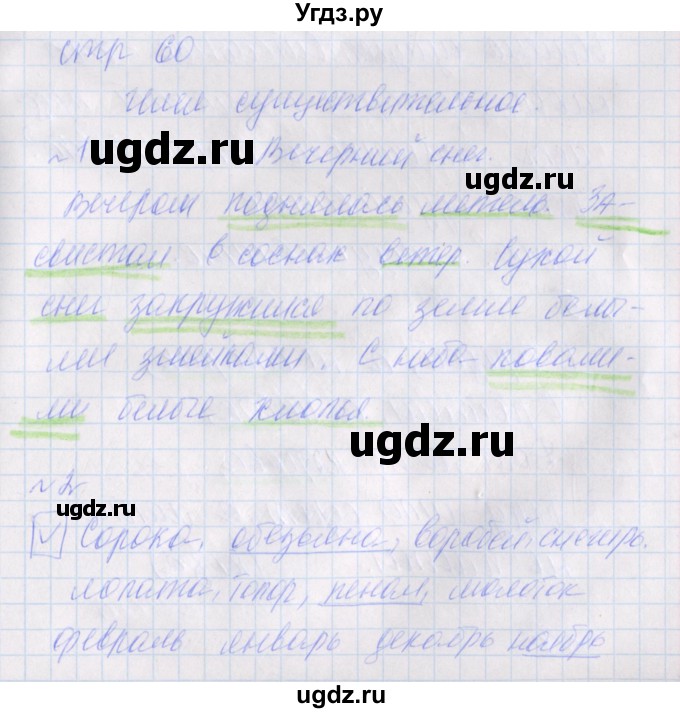 Угдз.ру
стр 60
Имя существительное.
№1 Вечерний снег.
ugdz.ru
ugdz.ru
Вечером поднялась метель. За-
свистал в соснах ветер. Сухой
снег закружился по земле белы-
ми змейками. С неба повали-
ли белые хлопья.
ugdz.ru
№2
ugdz.ru
Сорока, обезьяна, воробей, снегирь.
лопата, топор, пенал, молоток
февраль январь декабрь ноябрь
ugdz.ru